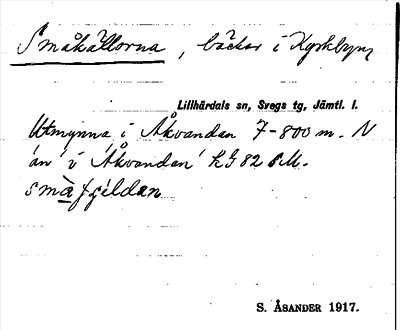 Småkällorna, bäckar i Kyrkbyn,
Lillhärdals sn, Svegs tg, Jämtl. l.
Utmynna i Åkvandan 7-800 m. N
än i Åkvandan
småfjeldan
S. ÅSANDER 1917.